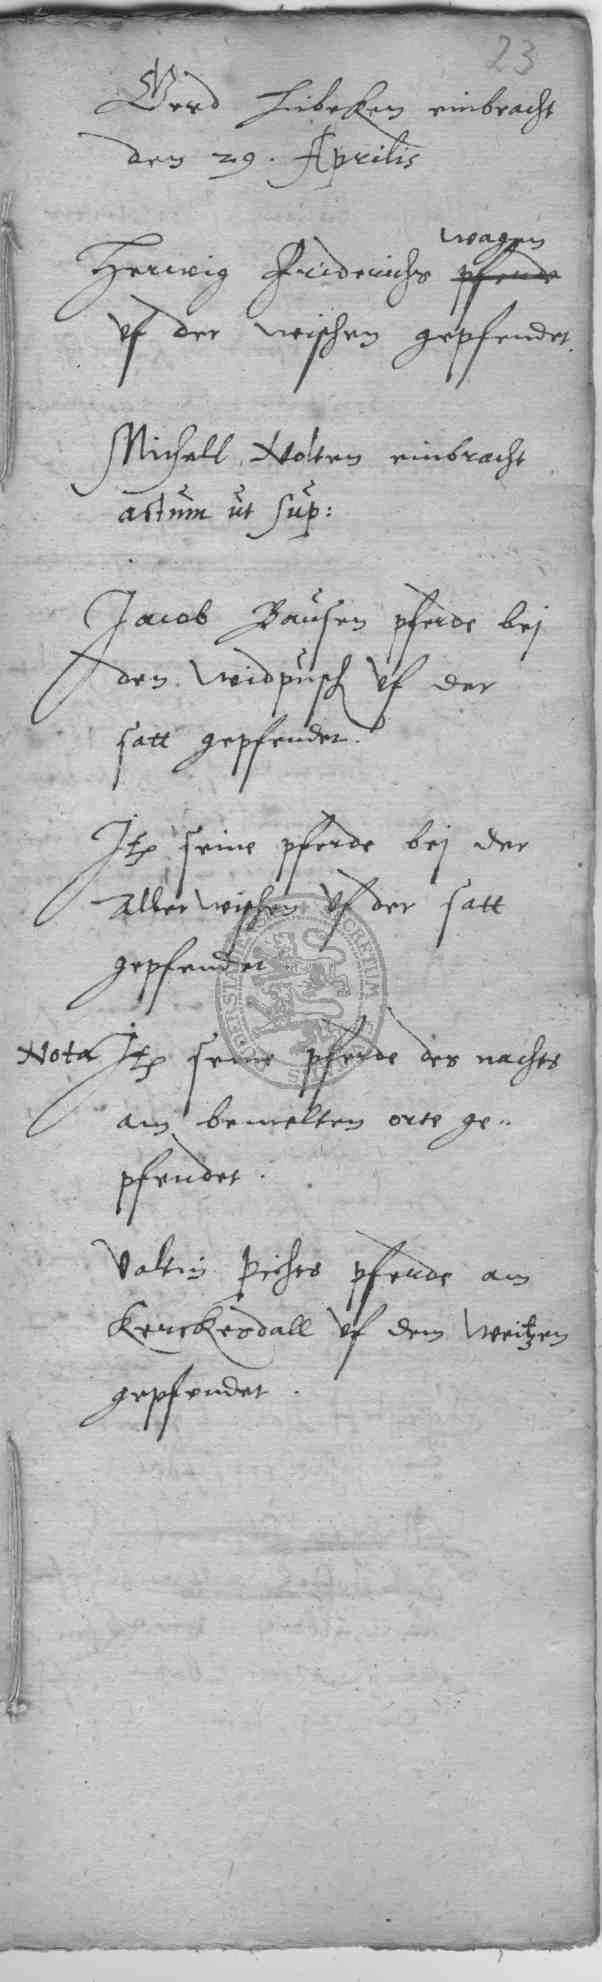 23
Gerd Lübeken einbracht
den 29. Aprilis
wagen
Herwig Friderichs pferde
vf der wischen gepfendet
Michell Nolten einbracht
actum ut sup:
Jacob Bausen pferde bej
den widpusch vf der
satt gepfendet.
Itz seine pferde bej der
Aller wischen vf der satt
gepfendet
Nota Itz seine pferde des nachts
am bemelten orte ge..
pfendet.
Valtin Pichts pferde am
Kerckesdall vf dem weitzen
gepfendet.